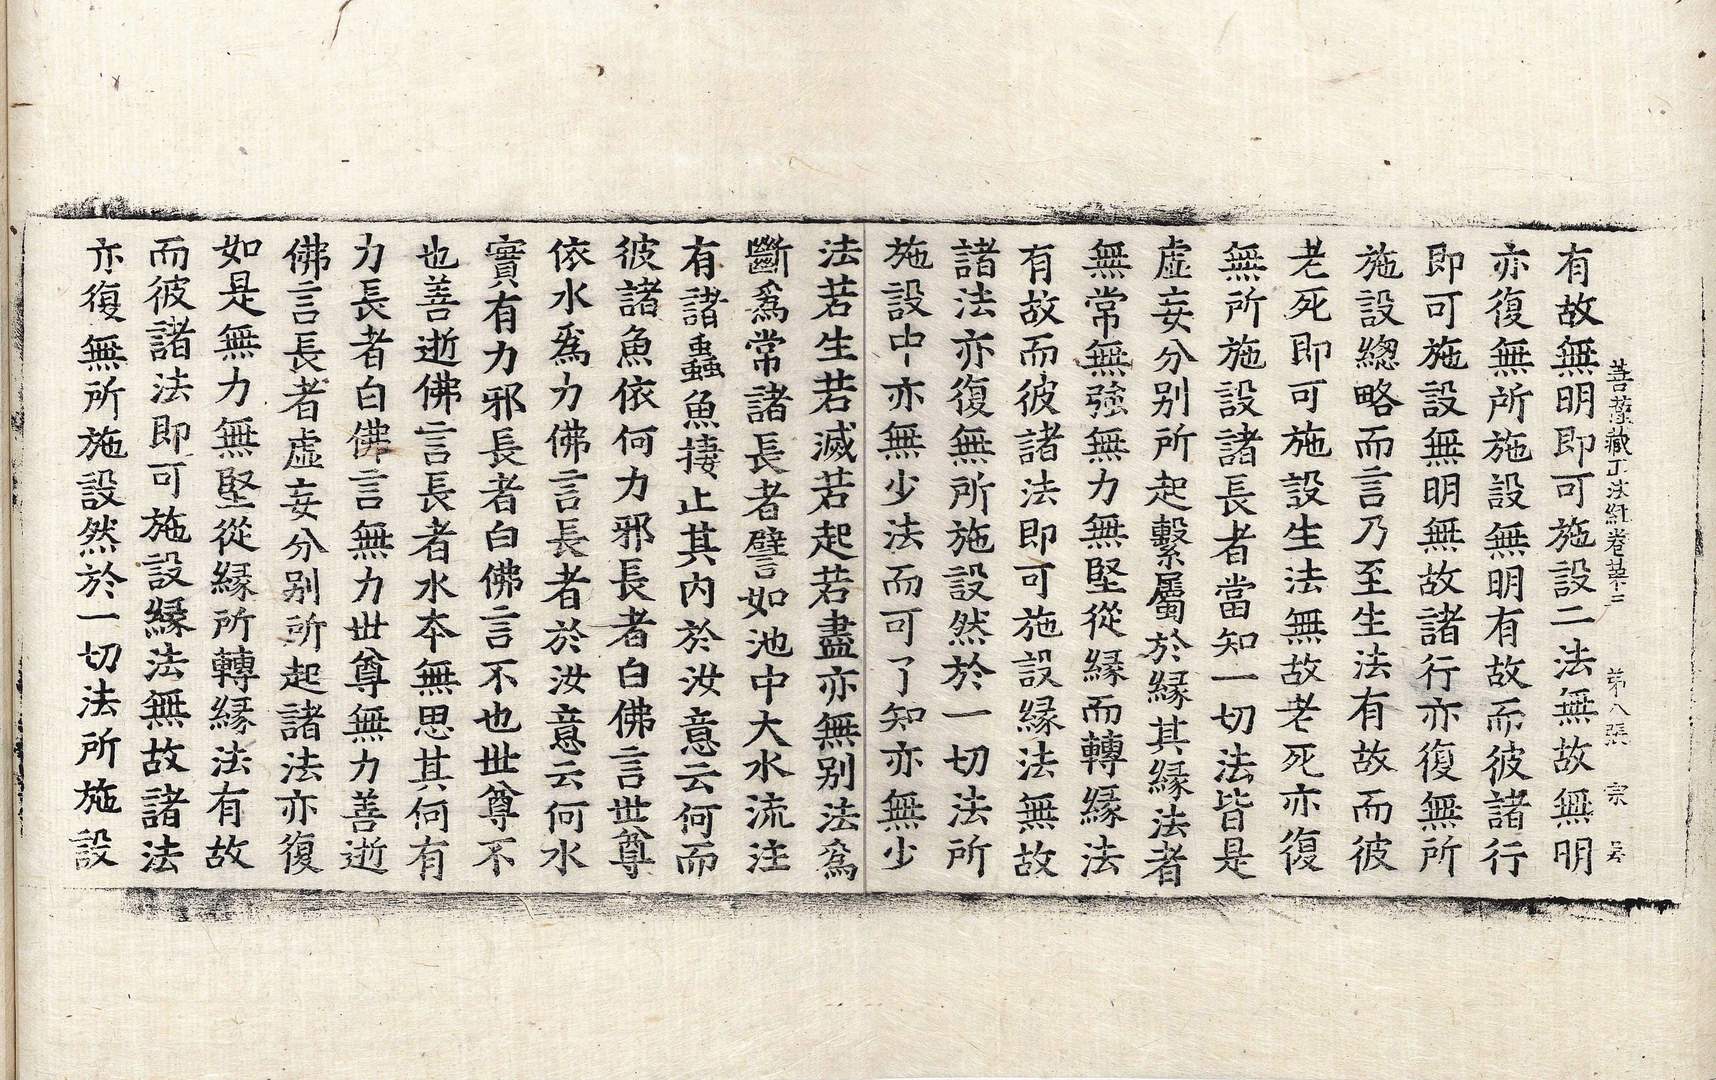 菩薩藏正法經卷第十三 第八張 宗
有故無明即可施設二法無故無明
亦復無所施設無明有故而彼諸行
即可施設無明無故諸行亦復無所
施設緫略而言乃至生法有故而彼
老死即可施設生法無故老死亦復
無所施設諸長者當知一切法皆是
虛妄分别所起繫屬於緣其緣法者
無常無強無力無堅從緣而轉緣法
有故而彼諸法即可施設緣法無故
諸法亦復無所施設然於一切法所
施設中亦無少法而可了知亦無少
法若生若滅若起若盡亦無别法爲
斷爲常諸長者譬如池中大水流注
有諸蟲魚捿止其内於汝意云何而
彼諸魚依何力邪長者白佛言世尊
依水爲力佛言長者於汝意云何水
實有力邪長者白佛言不也世尊不
也善逝佛言長者水本無思其何有
力長者白佛言無力世尊無力善逝
佛言長者虛妄分别所起諸法亦復
如是無力無堅從緣所轉緣法有故
而彼諸法即可施設緣法無故諸法
亦復無所施設然於一切法所施設